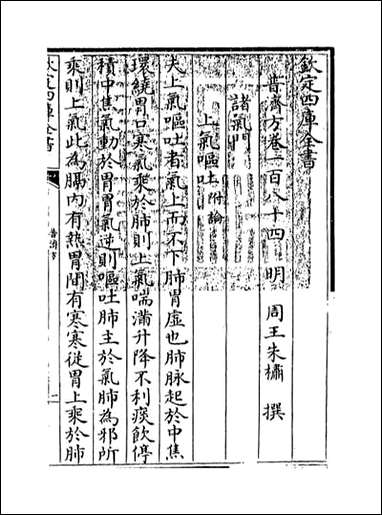 欽定四庫全書
普濟方卷一百八十四 明 周王朱橚 撰
諸氣門
上氣嘔吐附論
夫上氣嘔吐者氣上而不下肺胃虛也肺脉起於中焦
環繞胃口寒氣乘於肺則上氣喘滿升降不利痰飲停
積中焦氣動於胃胃氣逆則嘔吐肺主於氣肺為邪所
乘則上氣此為膈内有熱胃間有寒寒從胃上乘於肺
欽定四庫全書
普濟方
一